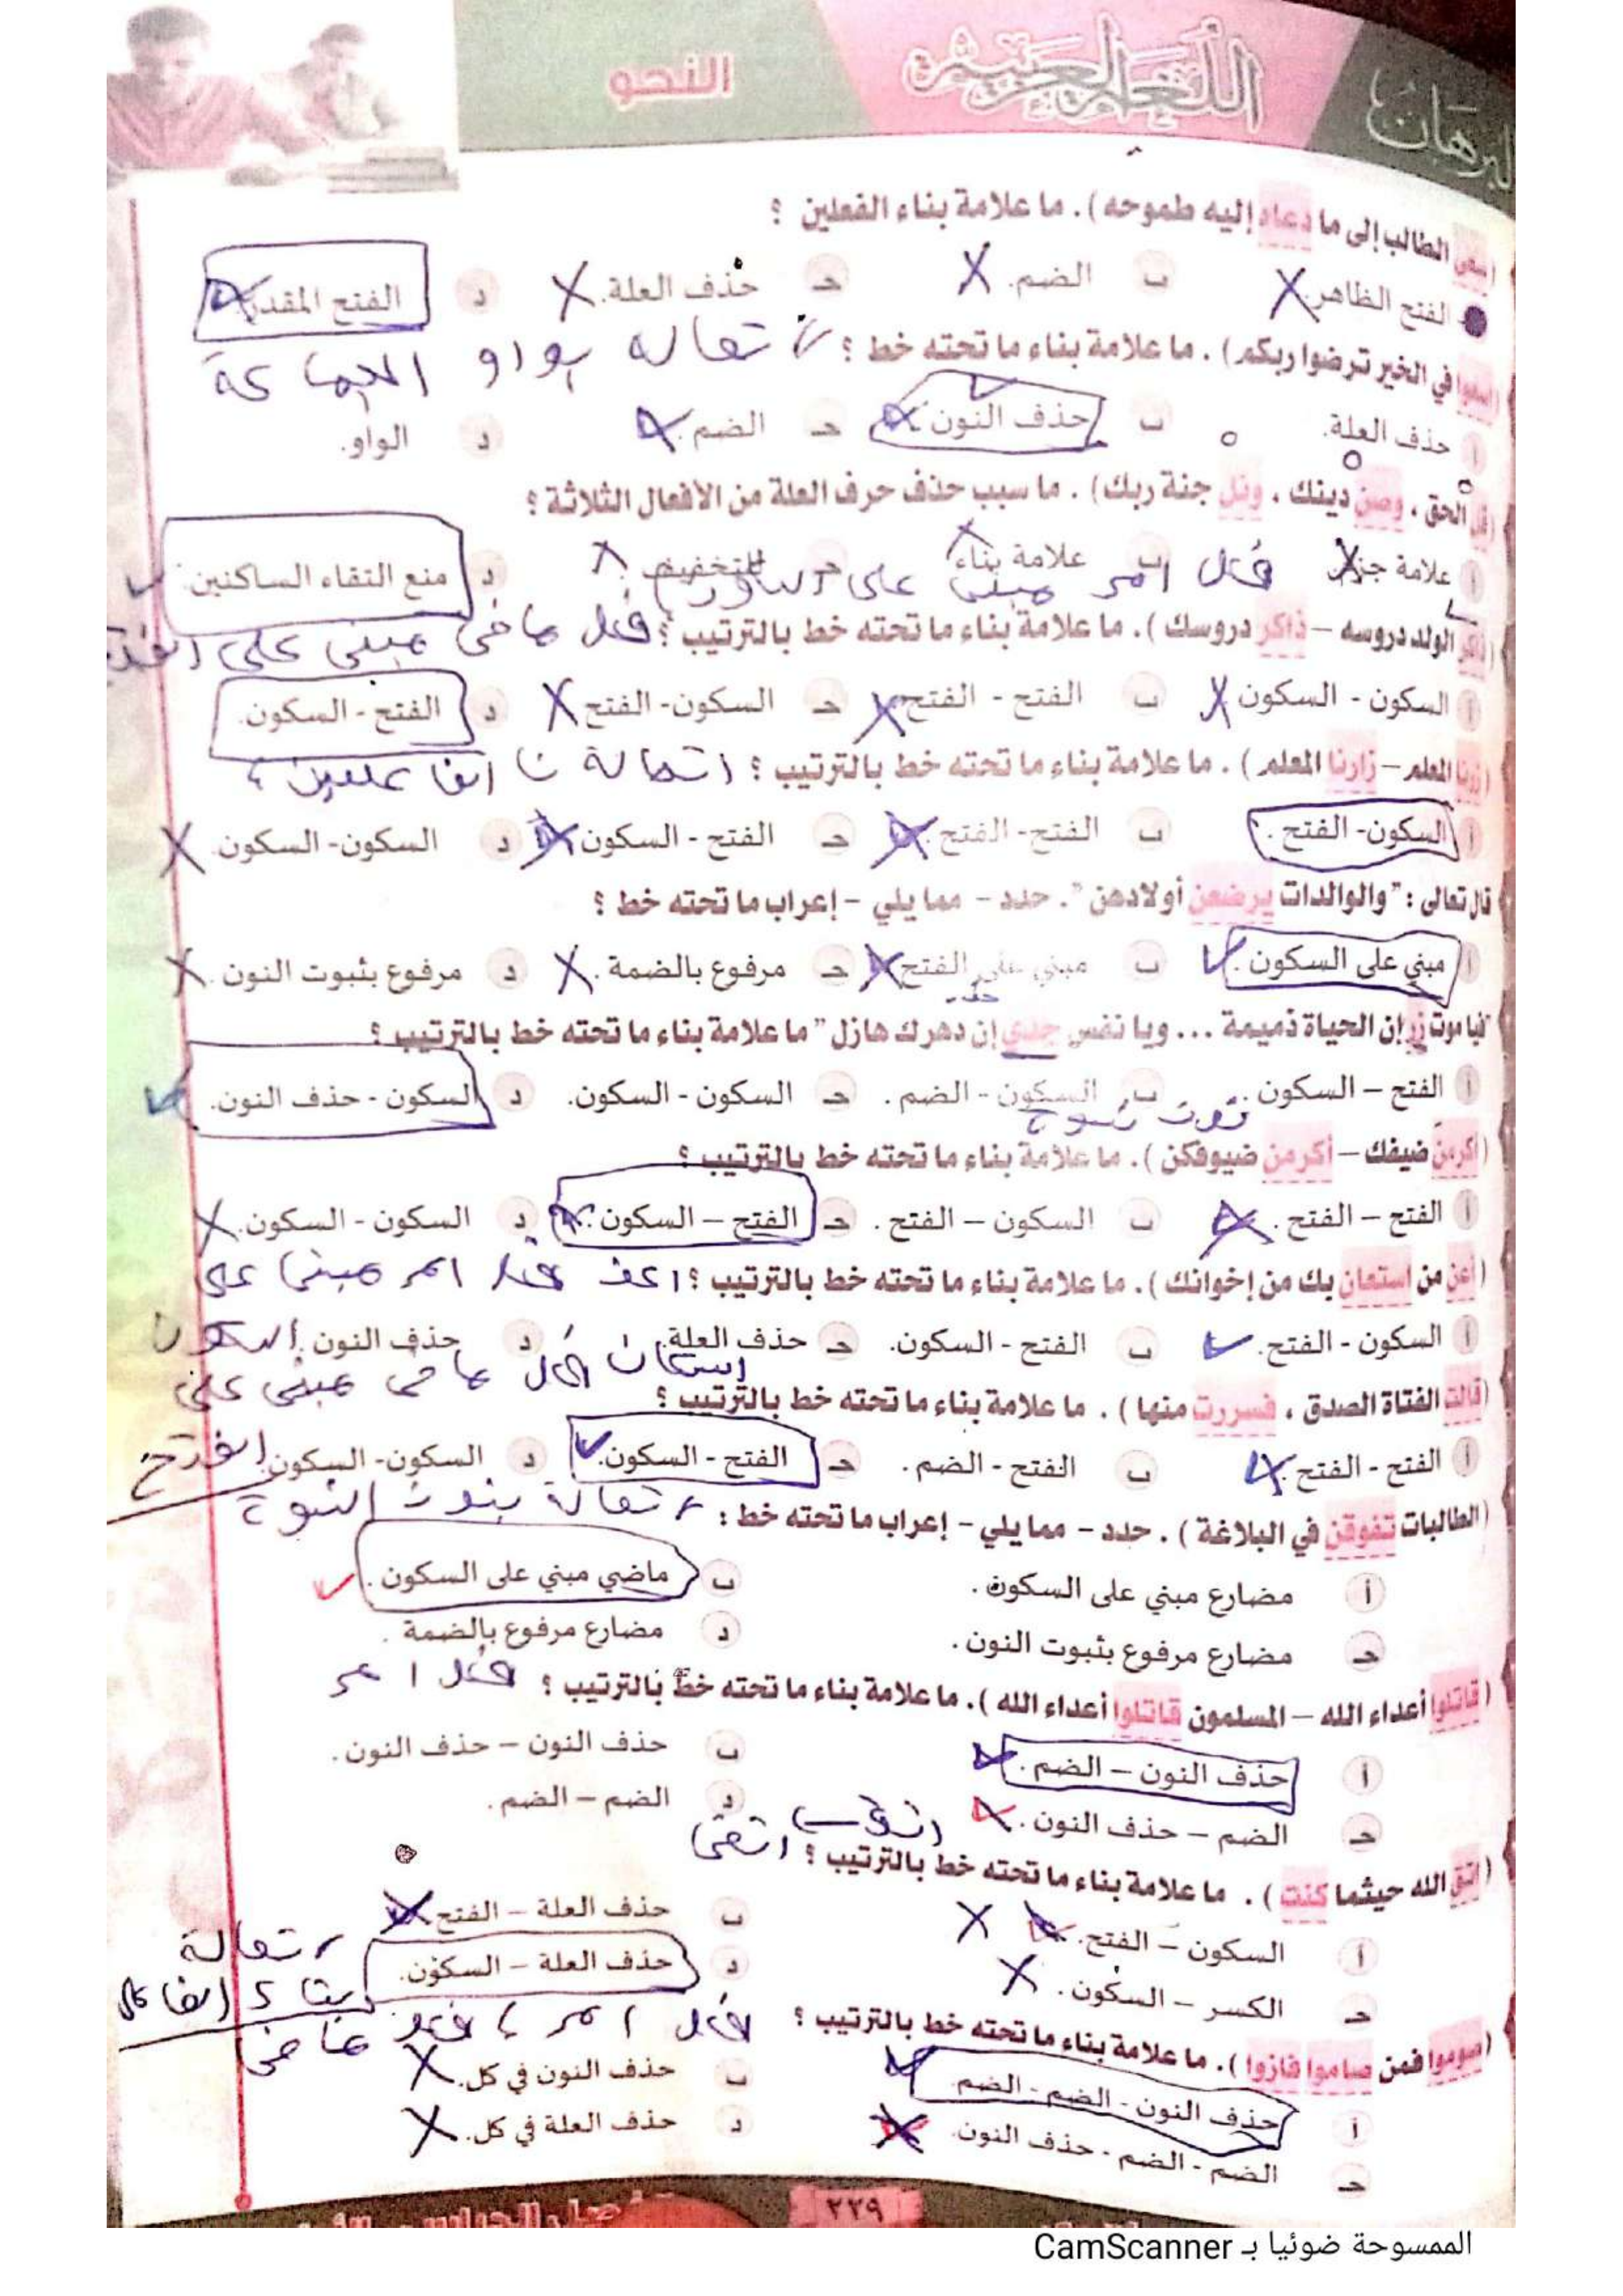 البرهان
اللغة العربية
النحو
(سعى الطالب إلى ما دعاه إليه طموحه). ما علامة بناء الفعلين ؟
الفتح الظاهر. ب الضم. جـ حذف العلة. د الفتح المقدر.
في الخير ترضوا ربكم). ما علامة بناء ما تحته خط ؟ اتصاله بواو الجماعة
أ حذف العلة. ب حذف النون. جـ الضم. د الواو.
(قل الحق ، وصن دينك ، ونل جنة ربك). ما سبب حذف حرف العلة من الأفعال الثلاثة ؟
أ علامة جزم. ب علامة بناء. جـ للتخفيف. د منع التقاء الساكنين.
فعل امر مبنى على السكون
(ذاكر الولد دروسه – ذاكر دروسك). ما علامة بناء ما تحته خط بالترتيب ؟ فعل ماضى مبنى على الفتح
أ السكون - السكون. ب الفتح - الفتح. جـ السكون- الفتح. د الفتح - السكون.
(زرنا المعلم – زارنا المعلم). ما علامة بناء ما تحته خط بالترتيب ؟ اتصاله نا الفاعلين
أ السكون- الفتح. ب الفتح- الفتح. جـ الفتح - السكون. د السكون- السكون.
قال تعالى : "والوالدات يرضعن أولادهن". حدد – مما يلي – إعراب ما تحته خط ؟
أ مبني على السكون. ب مبني على الفتح. جـ مرفوع بالضمة. د مرفوع بثبوت النون.
"فيا موت زر إن الحياة ذميمة ... ويا نفس جدي إن دهرك هازل" ما علامة بناء ما تحته خط بالترتيب ؟
أ الفتح – السكون. ب السكون - الضم. جـ السكون - السكون. د السكون - حذف النون.
نون نسوة
(أكرمن ضيفك – أكرمن ضيوفكن). ما علامة بناء ما تحته خط بالترتيب ؟
أ الفتح – الفتح. ب السكون – الفتح. جـ الفتح – السكون. د السكون - السكون.
(أعن من استعان بك من إخوانك). ما علامة بناء ما تحته خط بالترتيب ؟ اعن فعل امر مبنى على
أ السكون - الفتح. ب الفتح - السكون. جـ حذف العلة. د حذف النون. السكون
استعان فعل ماضى مبنى على
(قالت الفتاة الصدق ، فسررت منها). ما علامة بناء ما تحته خط بالترتيب ؟
أ الفتح - الفتح. ب الفتح - الضم. جـ الفتح - السكون. د السكون- السكون. الفتح
(الطالبات تفوقن في البلاغة). حدد – مما يلي – إعراب ما تحته خط : اتصاله بنون النسوة
أ مضارع مبني على السكون. ب ماضي مبني على السكون.
جـ مضارع مرفوع بثبوت النون. د مضارع مرفوع بالضمة.
(قاتلوا أعداء الله – المسلمون قاتلوا أعداء الله). ما علامة بناء ما تحته خط بالترتيب ؟ فعل امر
أ حذف النون – الضم. ب حذف النون – حذف النون.
جـ الضم – حذف النون. د الضم – الضم.
(اتق الله حيثما كنت). ما علامة بناء ما تحته خط بالترتيب ؟ اتقى
أ السكون – الفتح. ب حذف العلة – الفتح.
جـ الكسر – السكون. د حذف العلة – السكون.
اتصاله بتاء الفاعل
(صوموا فمن صاموا فازوا). ما علامة بناء ما تحته خط بالترتيب ؟ فعل امر ، فعل ماضى
أ حذف النون - الضم - الضم. ب حذف النون في كل.
جـ الضم - الضم - حذف النون. د حذف العلة في كل.
٢٢٩
الممسوحة ضوئيا بـ CamScanner